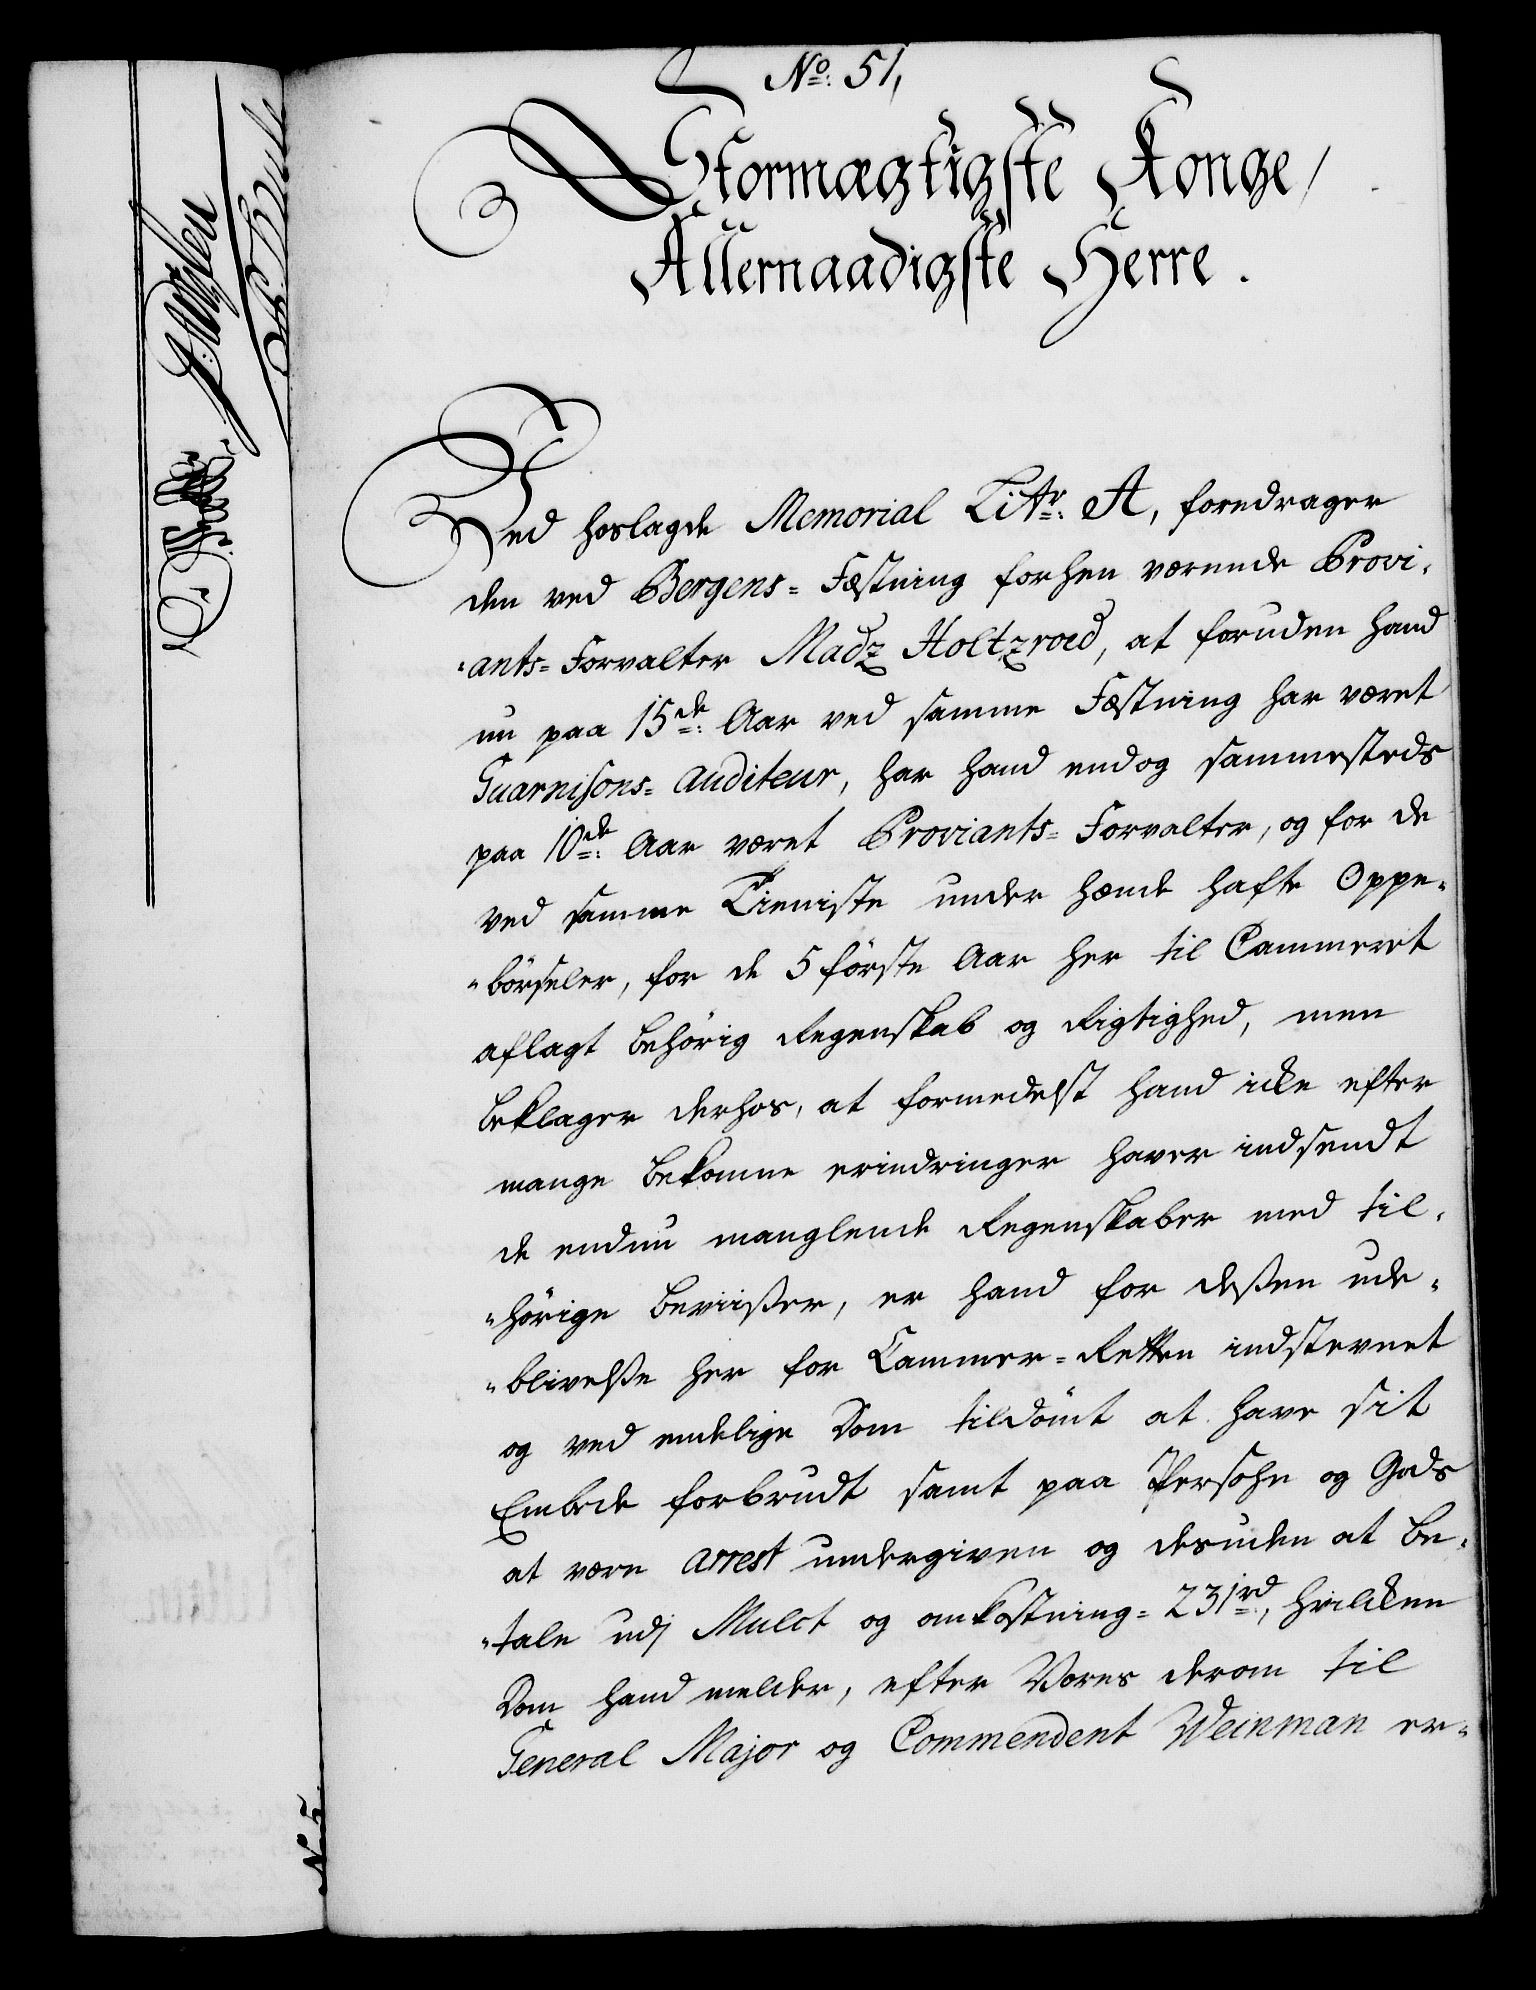 No: 51,
Stormægtigste Konge/
Allernaadigste Herre.
Ved hoslagde Memorial Litr: A, foredrager
den ved Bergens= Fæstning forhen værende Provi-
-ants= Forvalter Madz Holtzroed, at foruden hand
nu paa 15de: Aar ved samme Fæstning har været
Guarnisons= Auditeur, har hand endog sammesteds
paa 10de: Aar været Proviants= Forvalter, og for de
ved samme Tieniste under hænde hafte Oppe-
-börseler, for de 5 förste Aar her til Cammeret
aflagt behörig Regenskab og Rigtighed, men
beklager derhos, at formedelst hand icke efter
mange bekomne erindringer haver indsendt
de endnu manglende Regenskaber med til-
-hörige beviisßer, er hand for deßen ude-
-blivelße her for Cammer=Retten indstevnet
og ved endelige Dom tildömt at have sit
Embede forbrudt samt paa Persohn og Gods
at være arrest undergiven og desuden at be-
-tale udj Mulct og omkostning= 231rd:, hvilcken
Dom hand melder, efter Vores derom til
General Major og Commendent Weinman er-